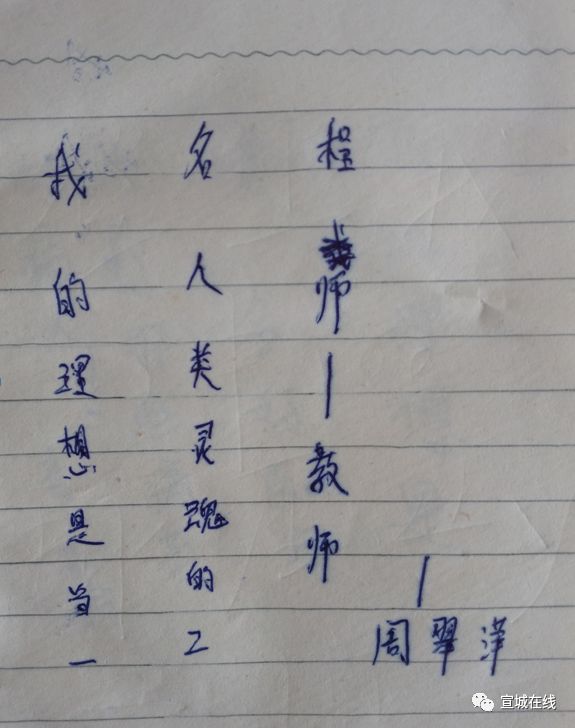 我的理想是当一
名人类灵魂的工
程师—教师
—周翠
宣城在线